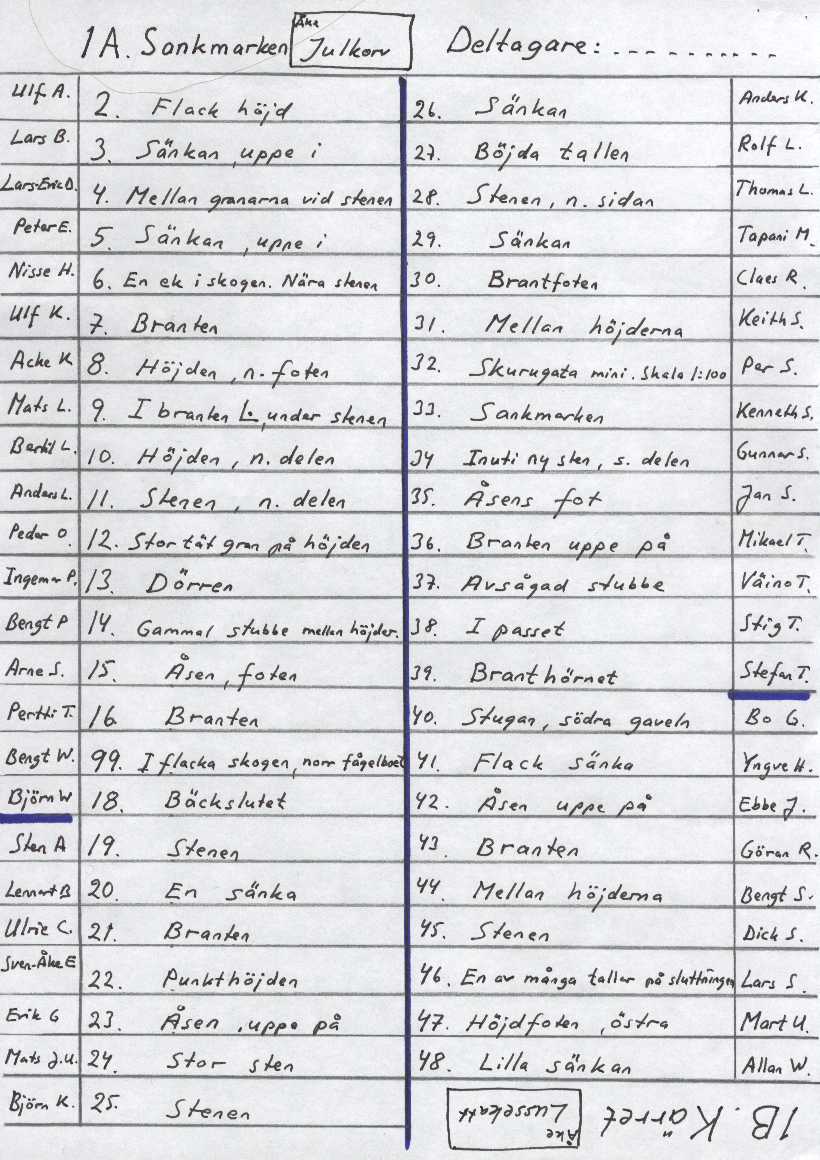 1A. Sankmarken Åke Julkorv Deltagare: ..........
Ulf A. 2. Flack höjd
Lars B. 3. Sänkan, uppe i
Lars-Eric D. 4. Mellan granarna vid stenen
Peter E. 5. Sänkan, uppe i
Nisse H. 6. En ek i skogen. Nära stenen
Ulf K. 7. Branten
Acke K 8. Höjden, n. foten
Mats L. 9. I branten, under stenen
Bertil L. 10. Höjden, n. delen
Anders L. 11. Stenen, n. delen
Peder O. 12. Stor tät gran på höjden
Ingemar P. 13. Dörren
Bengt P 14. Gammal stubbe mellan höjder.
Arne S. 15. Åsen, foten
Pertti T. 16. Branten
Bengt W. 99. I flacka skogen, norr fågelboet
Björn W 18. Bäckslutet
Sten A 19. Stenen
Lennart B 20. En sänka
Ulric C. 21. Branten
Sven-Åke E 22. Punkthöjden
Erik G 23. Åsen, uppe på
Mats J.U. 24. Stor sten
Björn K. 25. Stenen
26. Sänkan Anders K.
27. Böjda tallen Rolf L.
28. Stenen, n. sidan Thomas L.
29. Sänkan Tapani M.
30. Brantfoten Claes R.
31. Mellan höjderna Keith S.
32. Skurugata mini. Skala 1:100 Per S.
33. Sankmarken Kenneth S.
34 Inuti ny sten, s. delen Gunnar S.
35. Åsens fot Jan S.
36. Branten uppe på Mikael T.
37. Avsågad stubbe Väino T.
38. I passet Stig T.
39. Branthörnet Stefan T.
40. Stugan, södra gaveln Bo G.
41. Flack sänka Yngve H.
42. Åsen uppe på Ebbe J.
43. Branten Göran R.
44. Mellan höjderna Bengt S.
45. Stenen Dick S.
46. En av många tallar på sluttningen Lars S.
47. Höjdfoten, östra Mart U.
48. Lilla sänkan Allan W.
1B. Kärret Åke Lussekatt